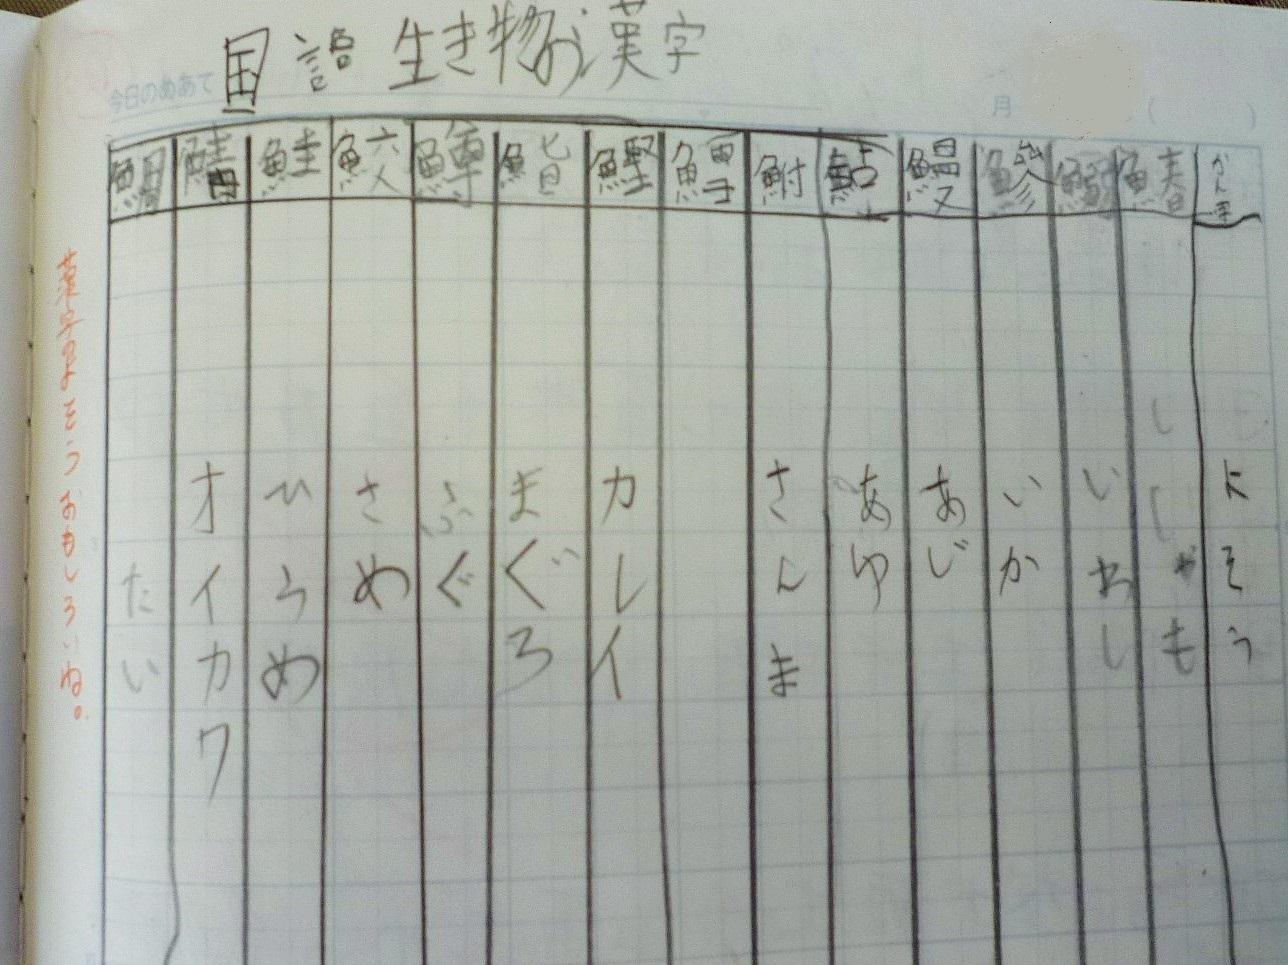 今日のめあて
国語 生き物の漢字
月 ( )
かん字 よそう
鰆 ししゃも
鰯 いわし
鰺 いか
鰻 あじ
鮎 あゆ
鮒 さんま
鰹 カレイ
鮨 まぐろ
鱒 ふぐ
鮫 さめ
鮭 ひらめ
鯖 オイカワ
鯛 たい
漢字のよそうおもしろいね。